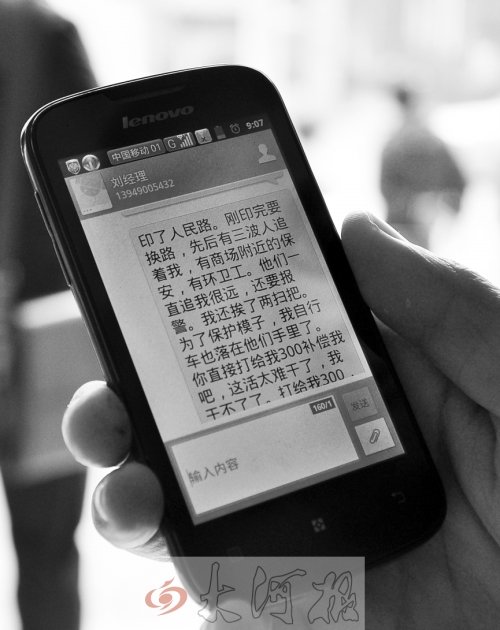 lenovo
中国移动 01 G 9:07
刘经理
13949005432
印了人民路。刚印完要
换路，先后有三波人追
着我，有商场附近的保
安，有环卫工。他们一
直追我很远，还要报
警。我还挨了两扫把。
为了保护模子，我自行
车也落在他们手里了。
你直接打给我300补偿我
吧，这活太难干了，我
干不了了。打给我300
160/1
发送
输入内容
大河报